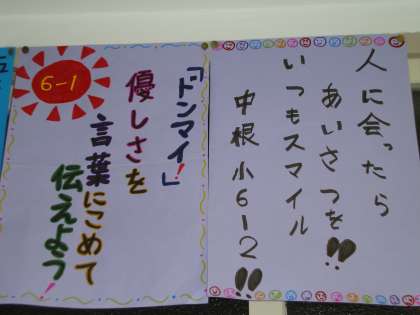 6-1
「ドンマイ!」
優しさを
言葉にこめて
伝えよう!
人に会ったら
あいさつを!!
いつもスマイル
中根小6-2!!